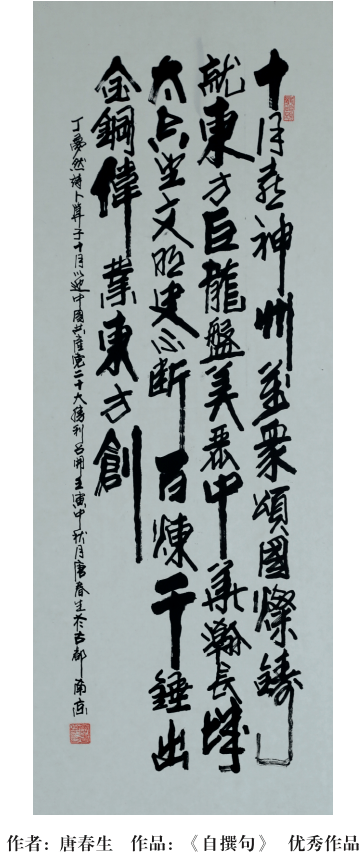 十月喜神州萬衆頌國燦鑄
就東方巨龍盤美麗中華瀚長城
太古坐文明史不断百煉千錘出
金鋼偉業東方創
丁夢然詩卜算子十月以迎中國共産党二十大勝利召開壬寅中秋月唐春生於古都南京
作者：唐春生 作品：《自撰句》 优秀作品